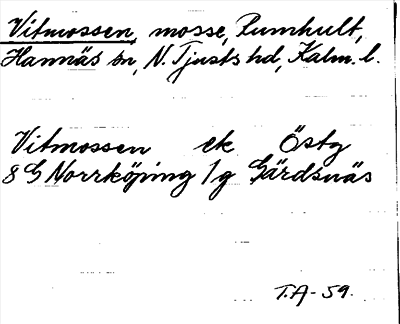 Vitmossen, mosse, Rumhult,
Hannäs sn, N. Tjusts hd, Kalm. l.
Vitmossen ek Östg
8G Norrköping 1g Gärdsnäs
T.A-59.